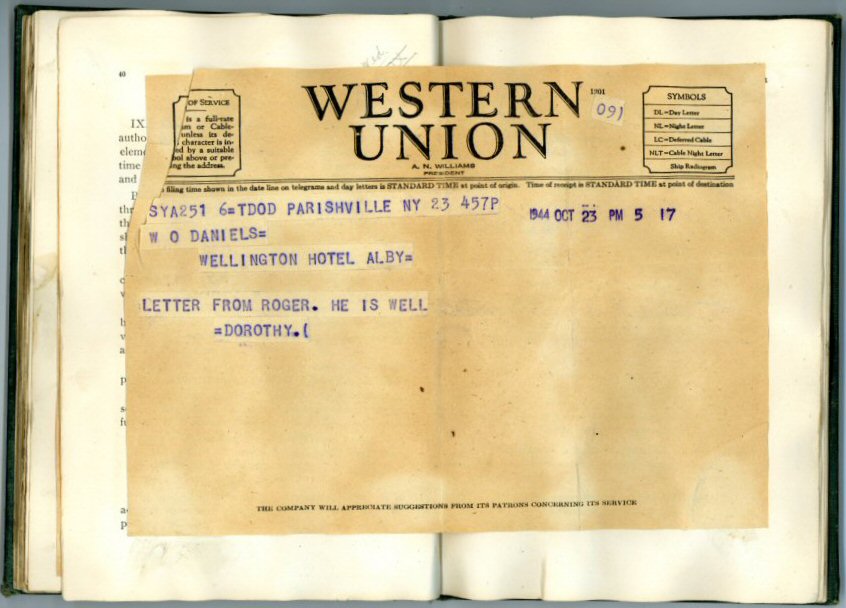 40
IX.
autho
eleme
time
and
OF SERVICE
is a full-rate
am or Cable-
unless its de-
character is in-
ed by a suitable
bol above or pre-
ing the address.
WESTERN
UNION
1201
(09)
A. N. WILLIAMS
PRESIDENT
SYMBOLS
DL=Day Letter
NL=Night Letter
LC=Deferred Cable
NLT=Cable Night Letter
Ship Radiogram
filing time shown in the date line on telegrams and day letters is STANDARD TIME at point of origin. Time of receipt is STANDARD TIME at point of destination
SYA251 6=TDOD PARISHVILLE NY 23 457P
1944 OCT 23 PM 5 17
W O DANIELS=
WELLINGTON HOTEL ALBY=
LETTER FROM ROGER. HE IS WELL
=DOROTHY.(
THE COMPANY WILL APPRECIATE SUGGESTIONS FROM ITS PATRONS CONCERNING ITS SERVICE